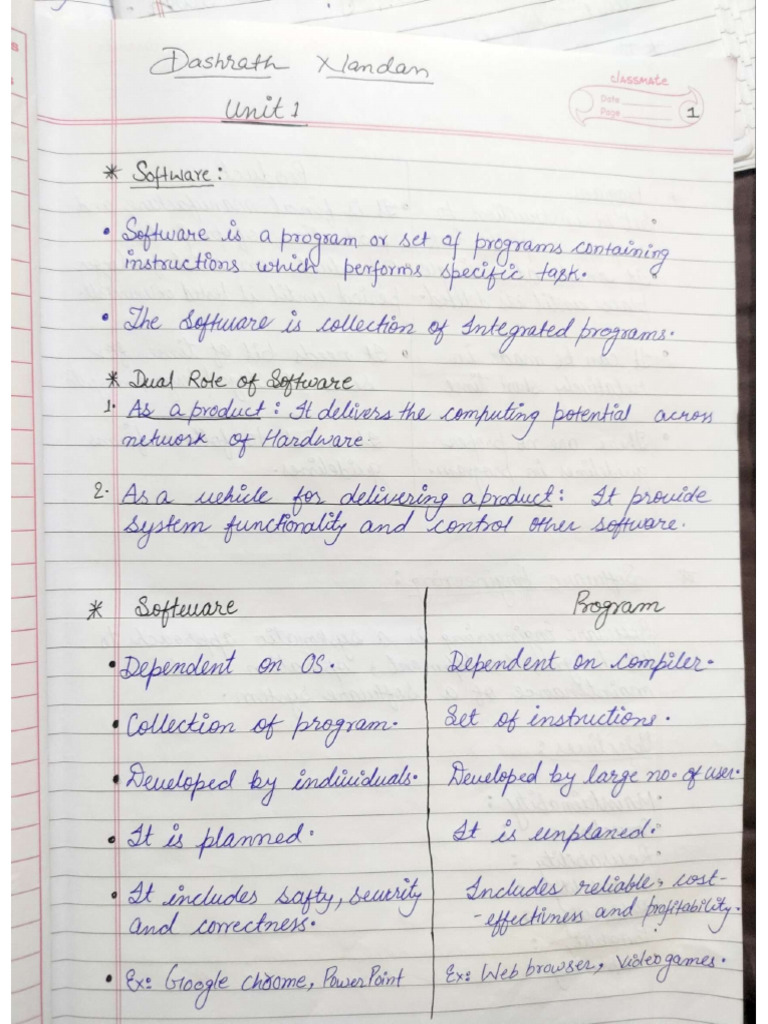 Dashrath Nandan
classmate
Date
Page 1
Unit 1
* Software:
• Software is a program or set of programs containing
instructions which performs specific task.
• The Software is collection of Integrated programs.
* Dual Role of Software
1. As a product: It delivers the computing potential across
network of Hardware.
2. As a vehicle for delivering a product: It provide
system functionality and control other software.
* Software Program
• Dependent on OS. Dependent on compiler.
• Collection of program. Set of instructions.
• Developed by individuals. Developed by large no. of user.
• It is planned. It is unplaned.
• It includes safty, security Includes reliable, cost-
and correctness. -effectiness and profitability.
• Ex: Google chrome, PowerPoint Ex: Web browser, Video games.